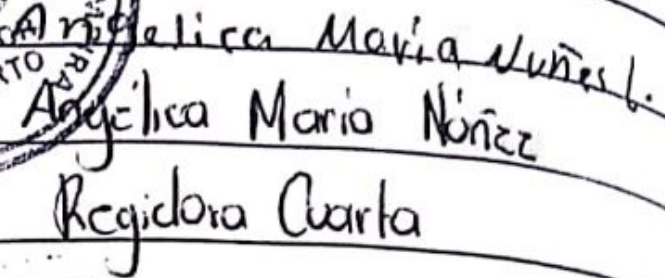 Angelica Maria Nuñes L.
Angélica Maria Núñez
Regidora Cuarta